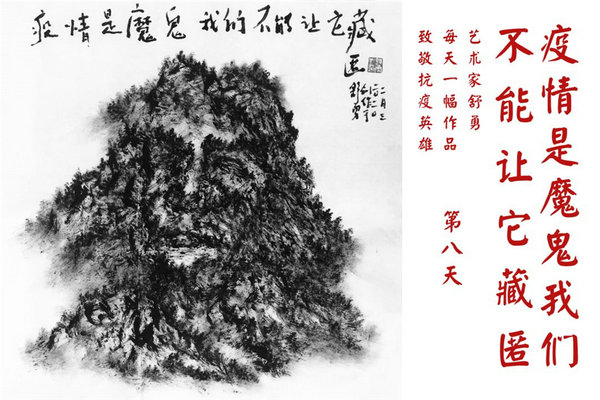 疫情是魔鬼我们不能让它藏
匿
二月三
舒勇
疫情是魔鬼我们
不能让它藏匿
艺术家舒勇
每天一幅作品
致敬抗疫英雄
第八天